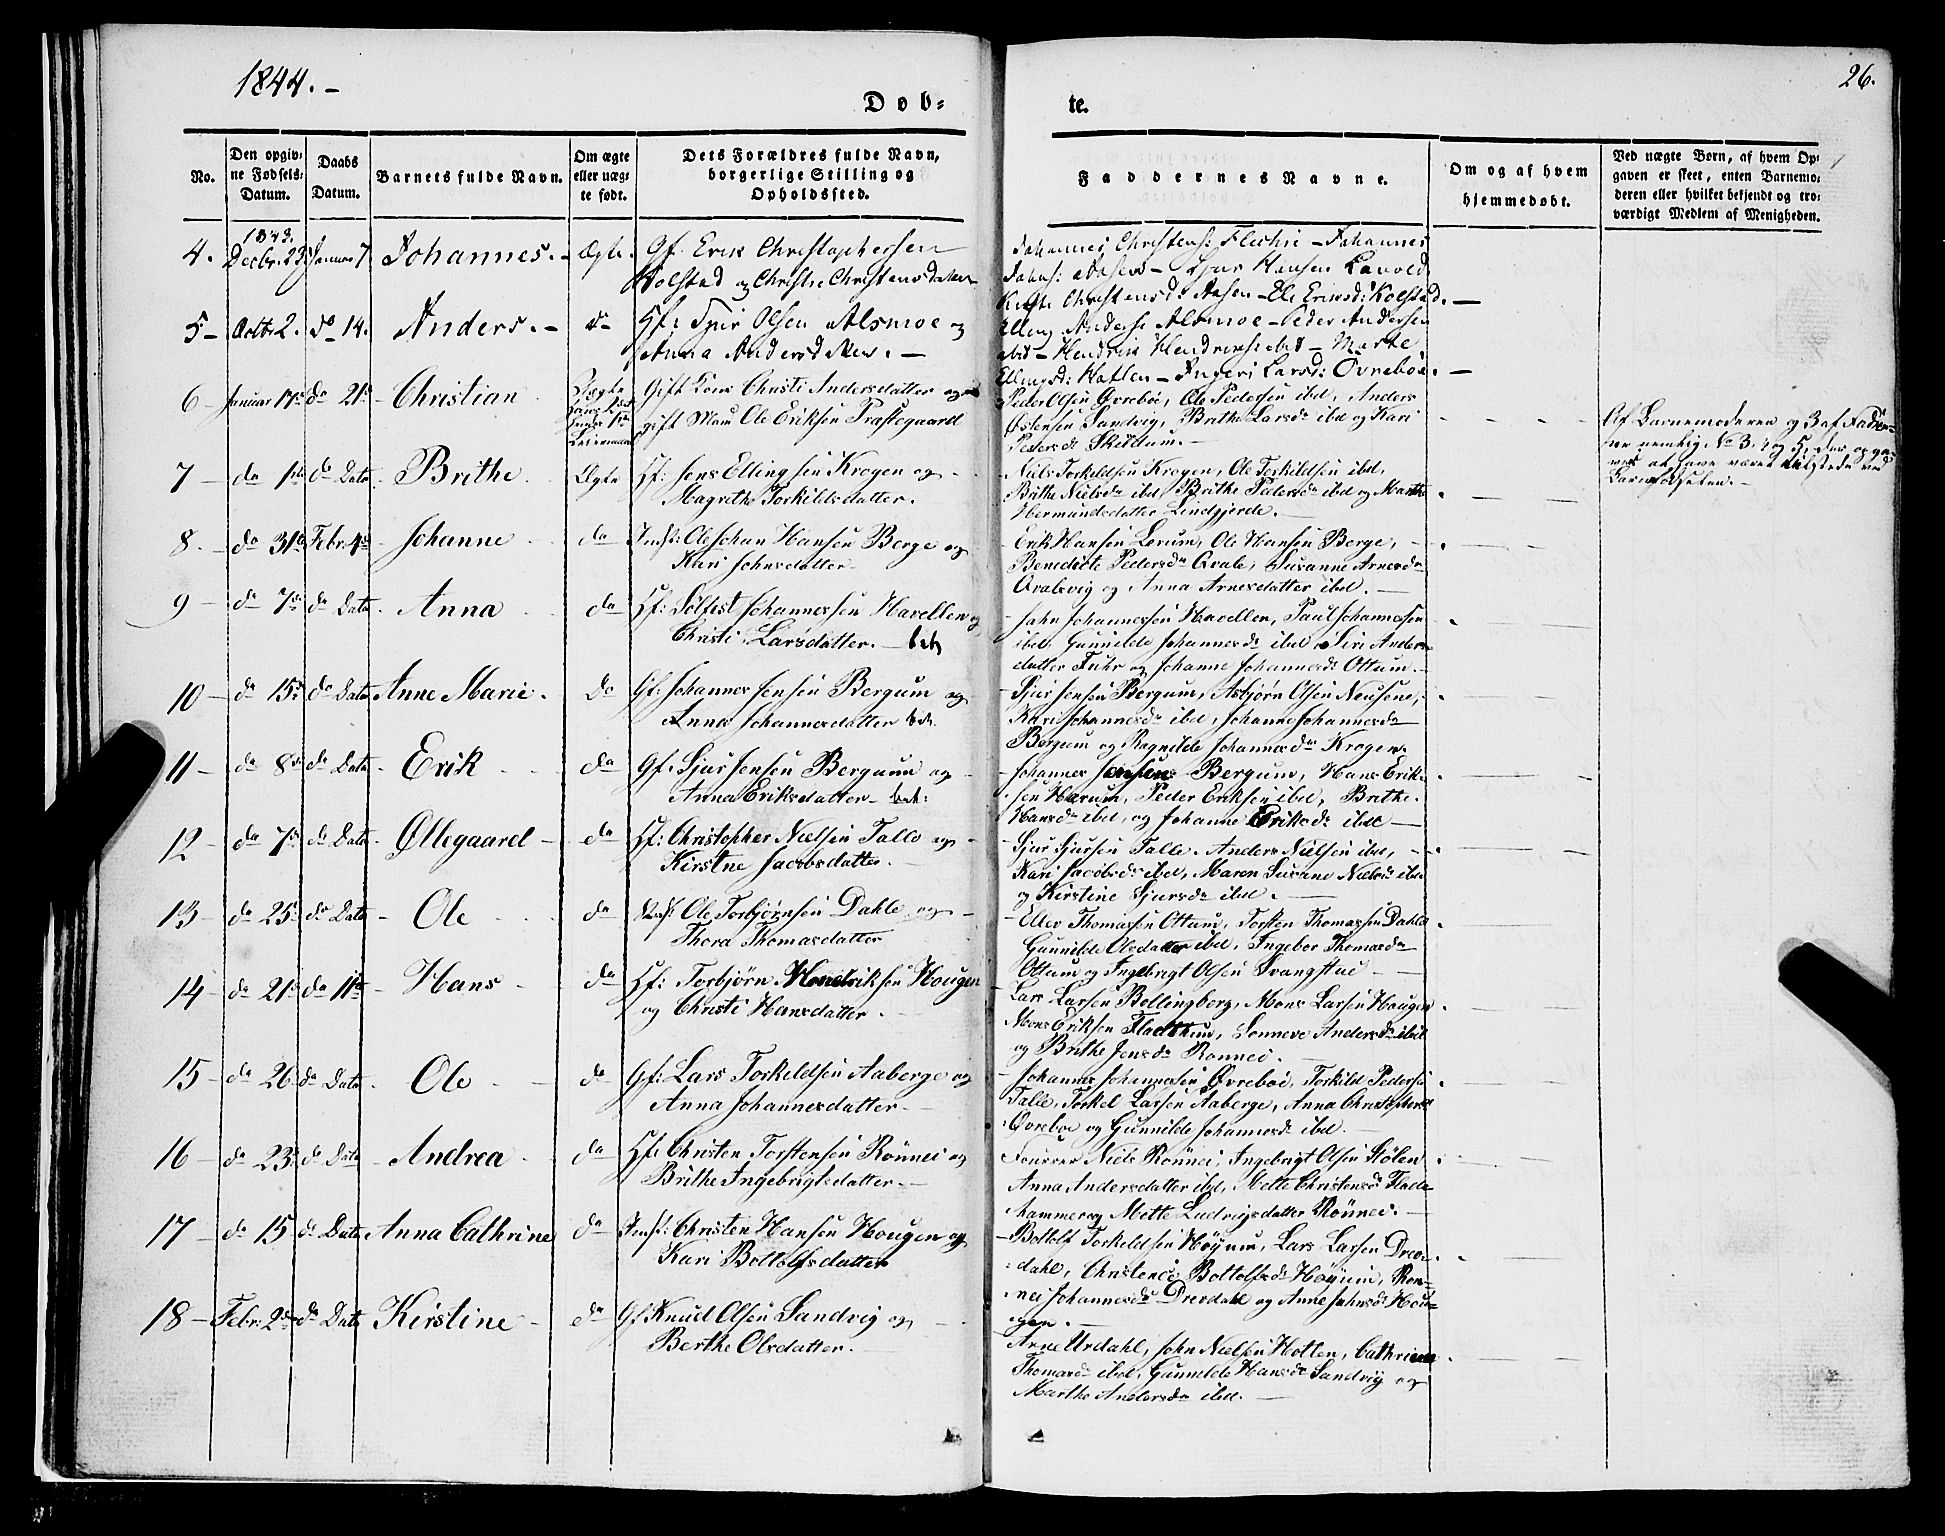 1844. –
26.
Døb-
te.
No.
Den opgiv-
ne Fødsels-
Datum.
Daabs
Datum.
Barnets fulde Navn.
Om ægte
eller uæg-
te født.
Dets Forældres fulde Navn,
borgerlige Stilling og
Opholdssted.
Faddernes Navne.
Om og af hvem
hjemmedøbt.
Ved uægte Børn, af hvem Op-
gaven er skeet, enten Barnemo-
deren eller hvilket bekjendt og tro-
værdigt Medlem af Menigheden.
1843.
4. Decbr. 23 Januar 7 Johannes. – Ægte. Gf. Erik Christophersen
Kolstad og Christie Christensdatter
Johannes Christens: – Johannes
Johns: Aasen – Sjur Hansen
Christensd: Aasen – Ele Eriksd: Kolstad. –
5 – Octbr 2. do 14. Anders. – do Hf: Olsen Alsmoe og
Anna Andersdatter. –
Elling Anderss: Alsmoe – Peder Andersen
ibid – Hendrik Hendriks: ibid – Marte
Ellingsd: Hatlen – Ingeri Larsd: Övreboe. –
6 – Januar 17de do 21de Christian Uægte
Leiermaal
Gift Kone Christi Andersdatter og
gift Mand Ole Eriksen Præstegaard
Peder Olsen Øvrebøe, Ole Pedersen ibd, Anders
Sandvig, Brithe Larsdr ibd og Kari
Pedersdr Skildum. –
Af Barnemoderen og 3 af Fadder-
ne nemlig No 3. og 5, der
at have været tilstede ved
Barnefødselen. –
7 – do 1ste do Dato Brithe Ægte Hf: Jens Ellingsen Krogen og –
Magrethe Torkildsdatter.
Niels Torkildsen Krogen, Ole Torkildsen ibd,
Brithe Nielsdr ibd, Brithe Pedersdr ibd og Marthe
Hermundsdatter Lindfjerde. –
8. – do 31te Febr. 4de Johanne do Indst: Ole Johan Hansen Berge og
Kari Johnsdatter
Erik Hansen Lerum, Ole Hansen Berge,
Benedicte Pedersdr Qvale, Susanne Arnesdr
Qvalsvig og Anna Arnesdatter ibd. –
9 – do 7de do Dato Anna do Hf: Sölfest Johannessen Havellen og
Christi Larsdatter. –
John Johannessen Havellen, Paul Johannessen
ibd, Gunnilde Johannesdr ibd, Siri Anders-
datter Fuhr og Johanne Johannesdr Ottum. –
10 – do 15de do Dato Anne Marie. Do Gf: Johannes Jensen Bergum og
Anna Johannesdatter
Sjur Jensen Bergum, Asbjørn Olsen Neusene,
Kari Johannesdr ibd, Johanne Johannesdr
Bergum og Ragnilde Johannesdr Krogen.
11 – do 8de do Dato Erik do Gf: Sjur Jensen Bergum og
Anna Eriksdatter –
Johannes Jensen Bergum, Hans Erik-
sen Harum, Peder Eriksen ibd, Brithe
Hansdr ibd, og Johanne Eriksdr ibd –
12 – do 7de do Dato Øllegaard – do Hf: Christopher Nielsen Talle og –
Kirstne Jacobsdatter.
Sjur Sjursen Talle, Anders Nielsen ibd,
Kari Jacobsdr ibd, Maren Susane Nielsdr ibd
og Kirstine Sjursdr ibd. –
13 – do 25de do Dato – Ole do Ole Torbjørnsen Dahle og –
Thora Thomasdatter
Ellev Thomassen Ottum, Torsten Thomassen Dahle
Gunnilde Olsdatter ibd, Ingebor Thomasdr
Ottum og Ingebrigt Olsen Svangstue –
14 – do 21de do 11te – Hans do Hf: Torbjörn Hendriksen Hougen
og Christi Hansdatter.
Lars Larsen Bollingberg, Mons Larsen Hougen
Mons Eriksen Fladhum, Sonneve Andersdr ibd
og Brithe Jensdr Ronnei. –
15 – do 26 do Dato Ole do Gf: Lars Torkeldsen Aaberge og
Anna Johannesdatter –
Johannes Johannessen Øvreboe, Torkild Pedersen
Talle, Torkel Larsen Aaberge, Anna Christophersdr
Øvreboe og Gunnilde Johannesdr ibd. –
16 – do 23de do Dato – Andrea do Hf: Christen Torstensen Rönnei og
Brithe Ingebrigtsdatter. –
Fourrer Niels Rönnei, Ingebrigt Olsen Hølen
Anna Andersdatter ibd, Mette Christensdr Flade
hammer og Mette Ludvigsdatter Rönnei. –
17 – do 15 do Dato Anna Cathrine do Indst: Christen Hansen Hougen og
Kari Bottolfsdatter
Bottolf Torkeldsen Høyum, Lars Larsen Drev-
dahl, Christence Bottolfsdr Høyum, Ron-
nei Johannesdr Drevdahl og Anne Johnsdr Hou-
gen. –
18 – Febr. 2den do Dato Kirstine – do Gf Knud Olsen Sandvig og –
Berthe Olsdatter.
Arne Urdahl, John Nielsen Holten, Cathrine
Thomasdr ibd, Gunnilde Hansdr Sandvig og
Marthe Andersdr ibd. –